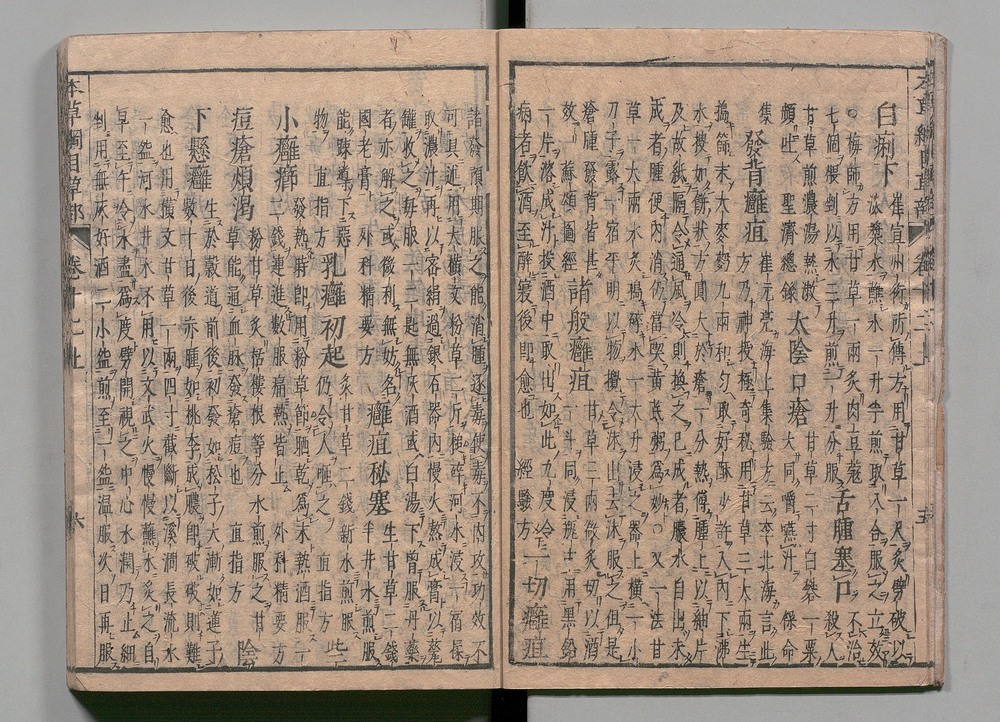 白痢下 崔宣州衍所傳方用甘草一尺炙劈破以
淡漿水蘸水一升半煎取八合服之立效
○梅師方用甘草一兩炙肉豆蔻
七個煨剉以水三升煎一升分服 舌腫塞口 不治殺人
甘草煎濃湯熱漱
頻吐 聖濟總錄 太陰口瘡 甘草二寸白礬一粟大同嚼嚥汁 保命
集
發背癰疽 崔元亮海上集驗方云李北海言此方乃神授極奇秘用甘草三大兩生
搗篩末大麥麪九兩和勻取好酥少許入內下沸
水搜如餅狀方圓大於瘡一分熱傅腫上以紬片
及故紙隔令通風冷則換之已成者膿水自出未
成者腫便內消仍當喫黃芪粥爲妙○又一法甘
草一大兩水炙搗碎水一大升浸之器上橫一小
刀子露一宿平明以物攪令沫出去沫服之但是
瘡腫發背皆甚效 蘇頌圖經 諸般癰疽 甘草三兩微炙切以酒
一斗同浸瓶中用黑鉛
一片溶成汁投酒中取出如此九度令
病者飲酒至醉寢後即愈也 經驗方 一切癰疽
諸發預期服之能消腫逐毒使毒不內攻功效不
可具述用大橫文粉草二斤搥碎河水浸一宿揉
取濃汁再以密絹過銀石器內慢火熬成膏以瓷
罐收之每服一二匙無灰酒或白湯下曾服丹藥
者亦解之或微利無妨名
國老膏 外科精要方 癰疽秘塞 生甘草二錢半井水煎服
能疎導下惡
物 直指方 乳癰初起 炙甘草二錢新水煎服仍令人咂之 直指方 些
小癰癤 發熱時即用粉草節晒乾爲末熱酒服一
二錢連進數服痛熱皆止 外科精要方
痘瘡煩渴 粉甘草炙栝樓根等分水煎服之甘
草能通血脉發瘡痘也 直指方 陰
下懸癰 生於穀道前後初發如松子大漸如蓮子
數十日後赤腫如桃李成膿即破破則難
愈也用橫文甘草一兩四寸截斷以溪澗長流水
一盌河水井水不用以文武火慢慢蘸水炙之自
早至午令水盡爲度劈開視之中心水潤乃止細
剉用無灰好酒二小盌煎至一盌溫服次日再服
本草綱目草部 卷十二上 五
本草綱目草部 卷十二上 六